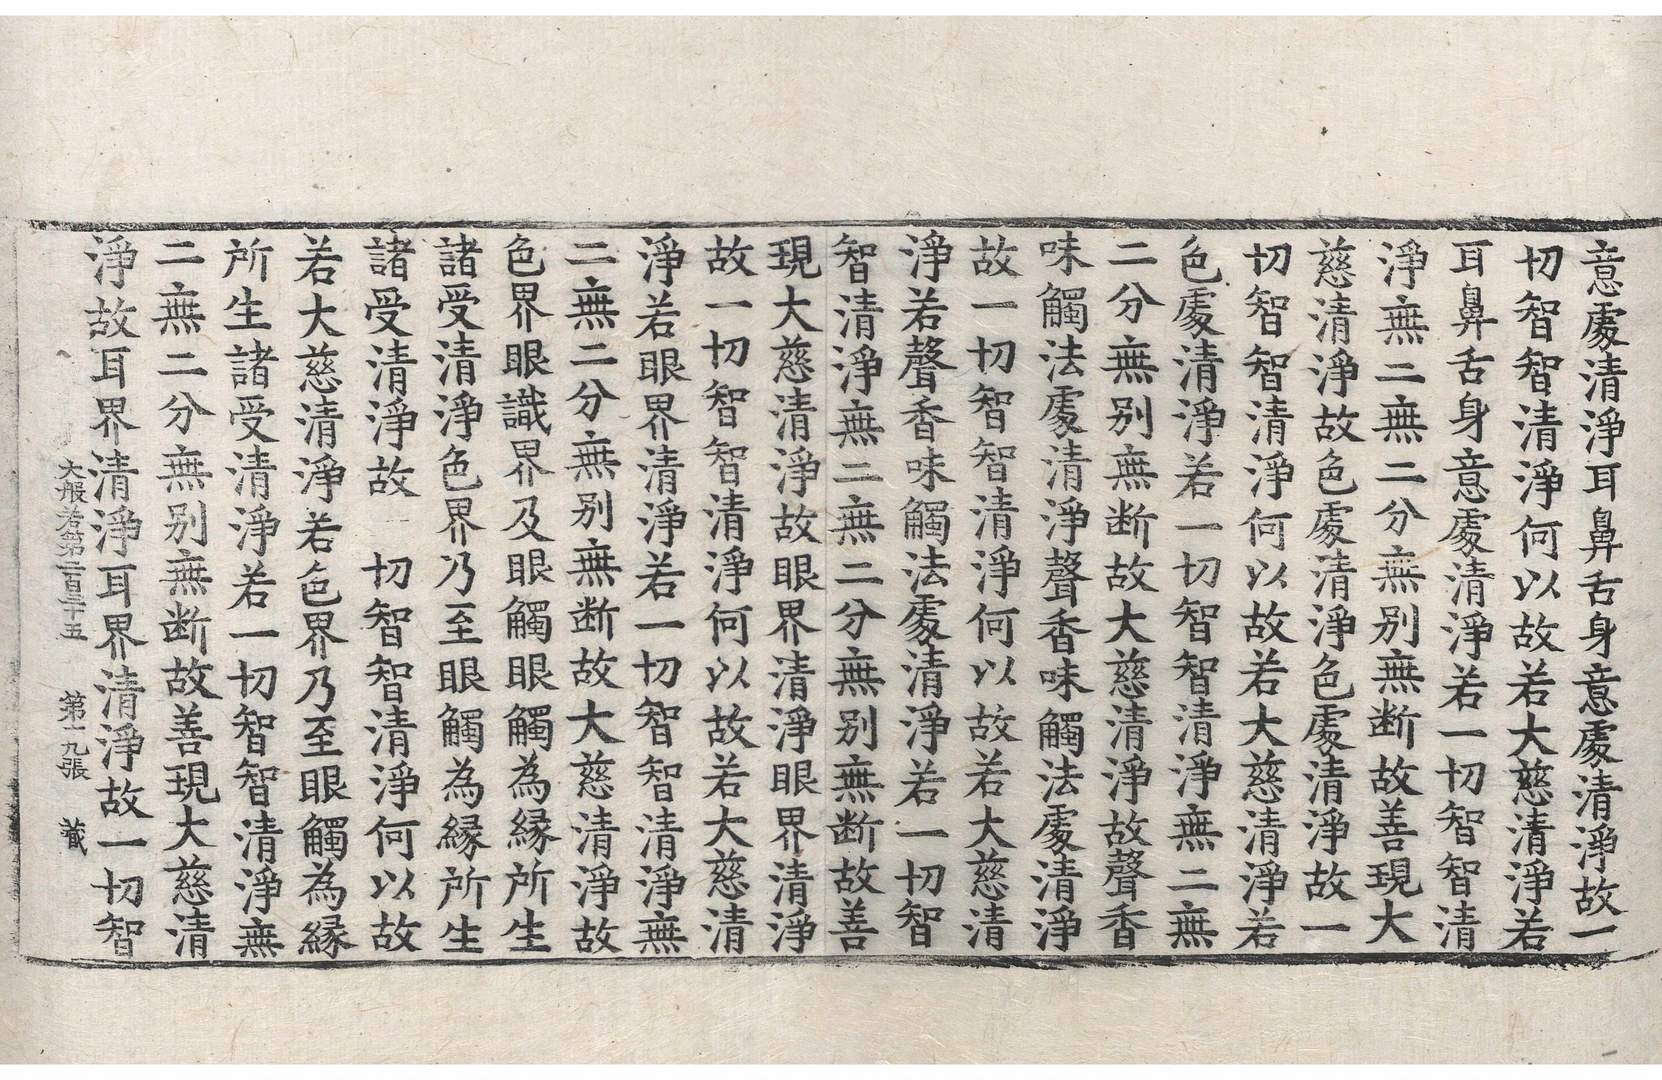 意處清淨耳鼻舌身意處清淨故一
切智智清淨何以故若大慈清淨若
耳鼻舌身意處清淨若一切智智清
淨無二無二分無別無断故善現大
慈清淨故色處清淨色處清淨故一
切智智清淨何以故若大慈清淨若
色處清淨若一切智智清淨無二無
二分無別無断故大慈清淨故聲香
味觸法處清淨聲香味觸法處清淨
故一切智智清淨何以故若大慈清
淨若聲香味觸法處清淨若一切智
智清淨無二無二分無別無断故善
現大慈清淨故眼界清淨眼界清淨
故一切智智清淨何以故若大慈清
淨若眼界清淨若一切智智清淨無
二無二分無別無断故大慈清淨故
色界眼識界及眼觸眼觸為縁所生
諸受清淨色界乃至眼觸為縁所生
諸受清淨故一切智智清淨何以故
若大慈清淨若色界乃至眼觸為縁
所生諸受清淨若一切智智清淨無
二無二分無別無断故善現大慈清
淨故耳界清淨耳界清淨故一切智
大般若第二百三十五 第十九張 蔵